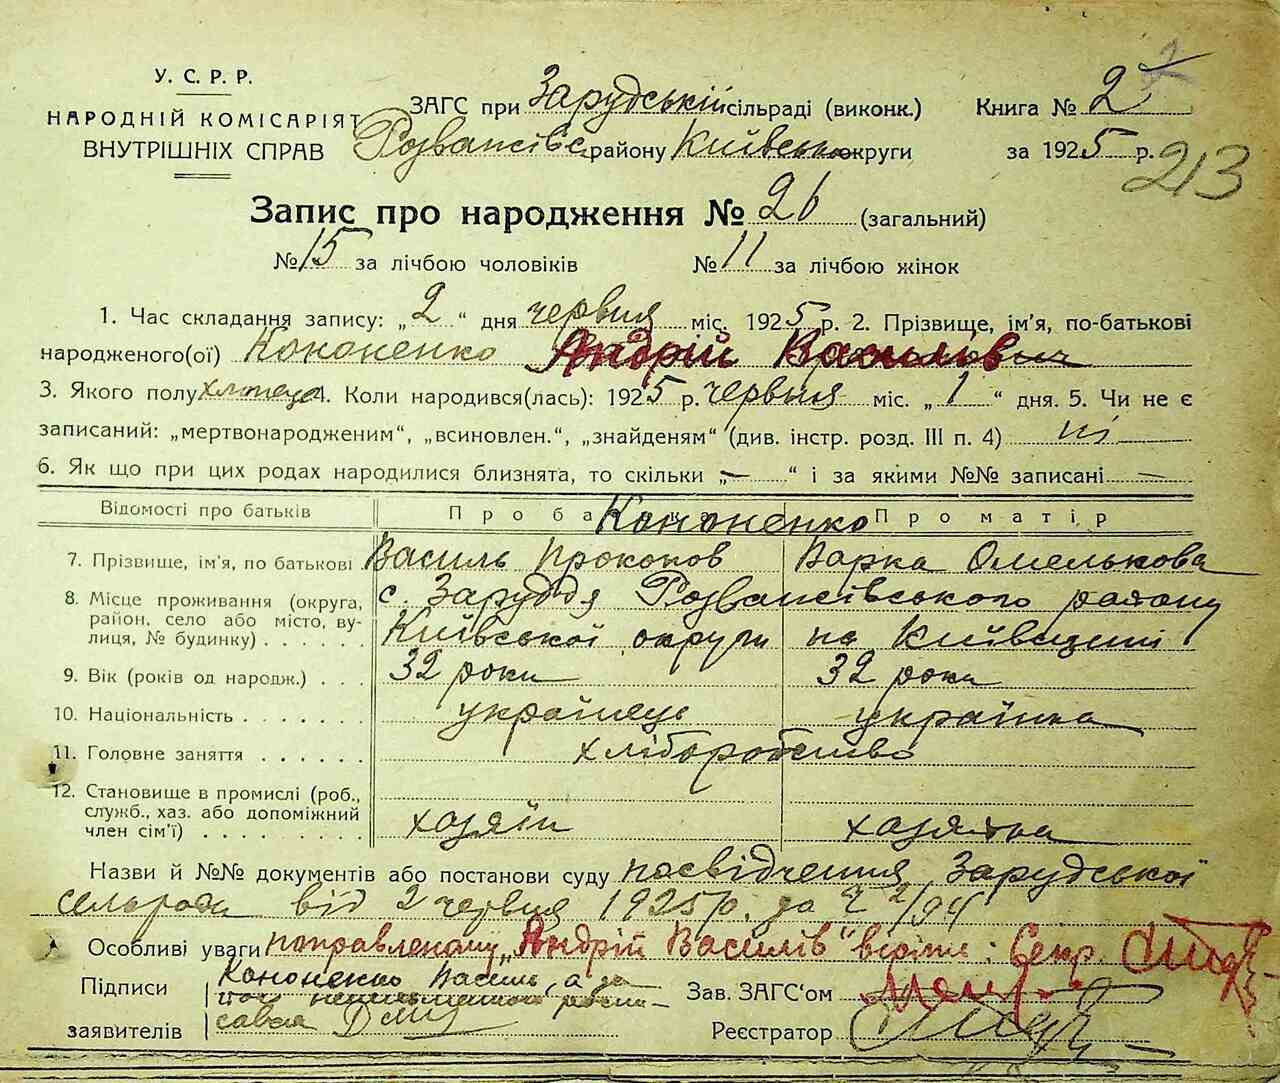 У. С. Р. Р.
НАРОДНІЙ КОМІСАРІЯТ
ВНУТРІШНІХ СПРАВ
ЗАГС при Зарудській сільраді (виконк.)
Розважівс. району Київсько округи
Книга № 2
за 1925 р.
213
Запис про народження № 26 (загальний)
№ 15 за лічбою чоловіків № 11 за лічбою жінок
1. Час складання запису: „2“ дня червня міс. 1925 р. 2. Прізвище, ім'я, по-батькові
народженого(ої) Кононенко Андрій Василів
3. Якого полу хлопець 4. Коли народився(лась): 1925 р. червня міс. „1“ дня. 5. Чи не є
записаний: „мертвонародженим“, „всиновлен.“, „знайденям“ (див. інстр. розд. III п. 4) ні
6. Як що при цих родах народилися близнята, то скільки „—“ і за якими №№ записані —
Відомості про батьків Про батька Про матір
Кононенко
7. Прізвище, ім'я, по батькові Василь Прокопов Варка Омелькова
8. Місце проживання (округа, район, село або місто, вулиця, № будинку) с. Заруддя Розважівського району
Київської округи на Київщині
9. Вік (років од народж.) 32 роки 32 роки
10. Національність українець українка
11. Головне заняття хліборобство
12. Становище в промислі (роб., служб., хаз. або допоміжний член сім'ї) хазяїн хазяйка
Назви й №№ документів або постанови суду посвідчення Зарудської
сельради від 2 червня 1925 р. за ч 2/94
Особливі уваги поправленому „Андрій Василів“ вірити: Секр.
Підписи
заявителів
Кононенко Василь, а за
Зав. ЗАГС'ом
Реєстратор